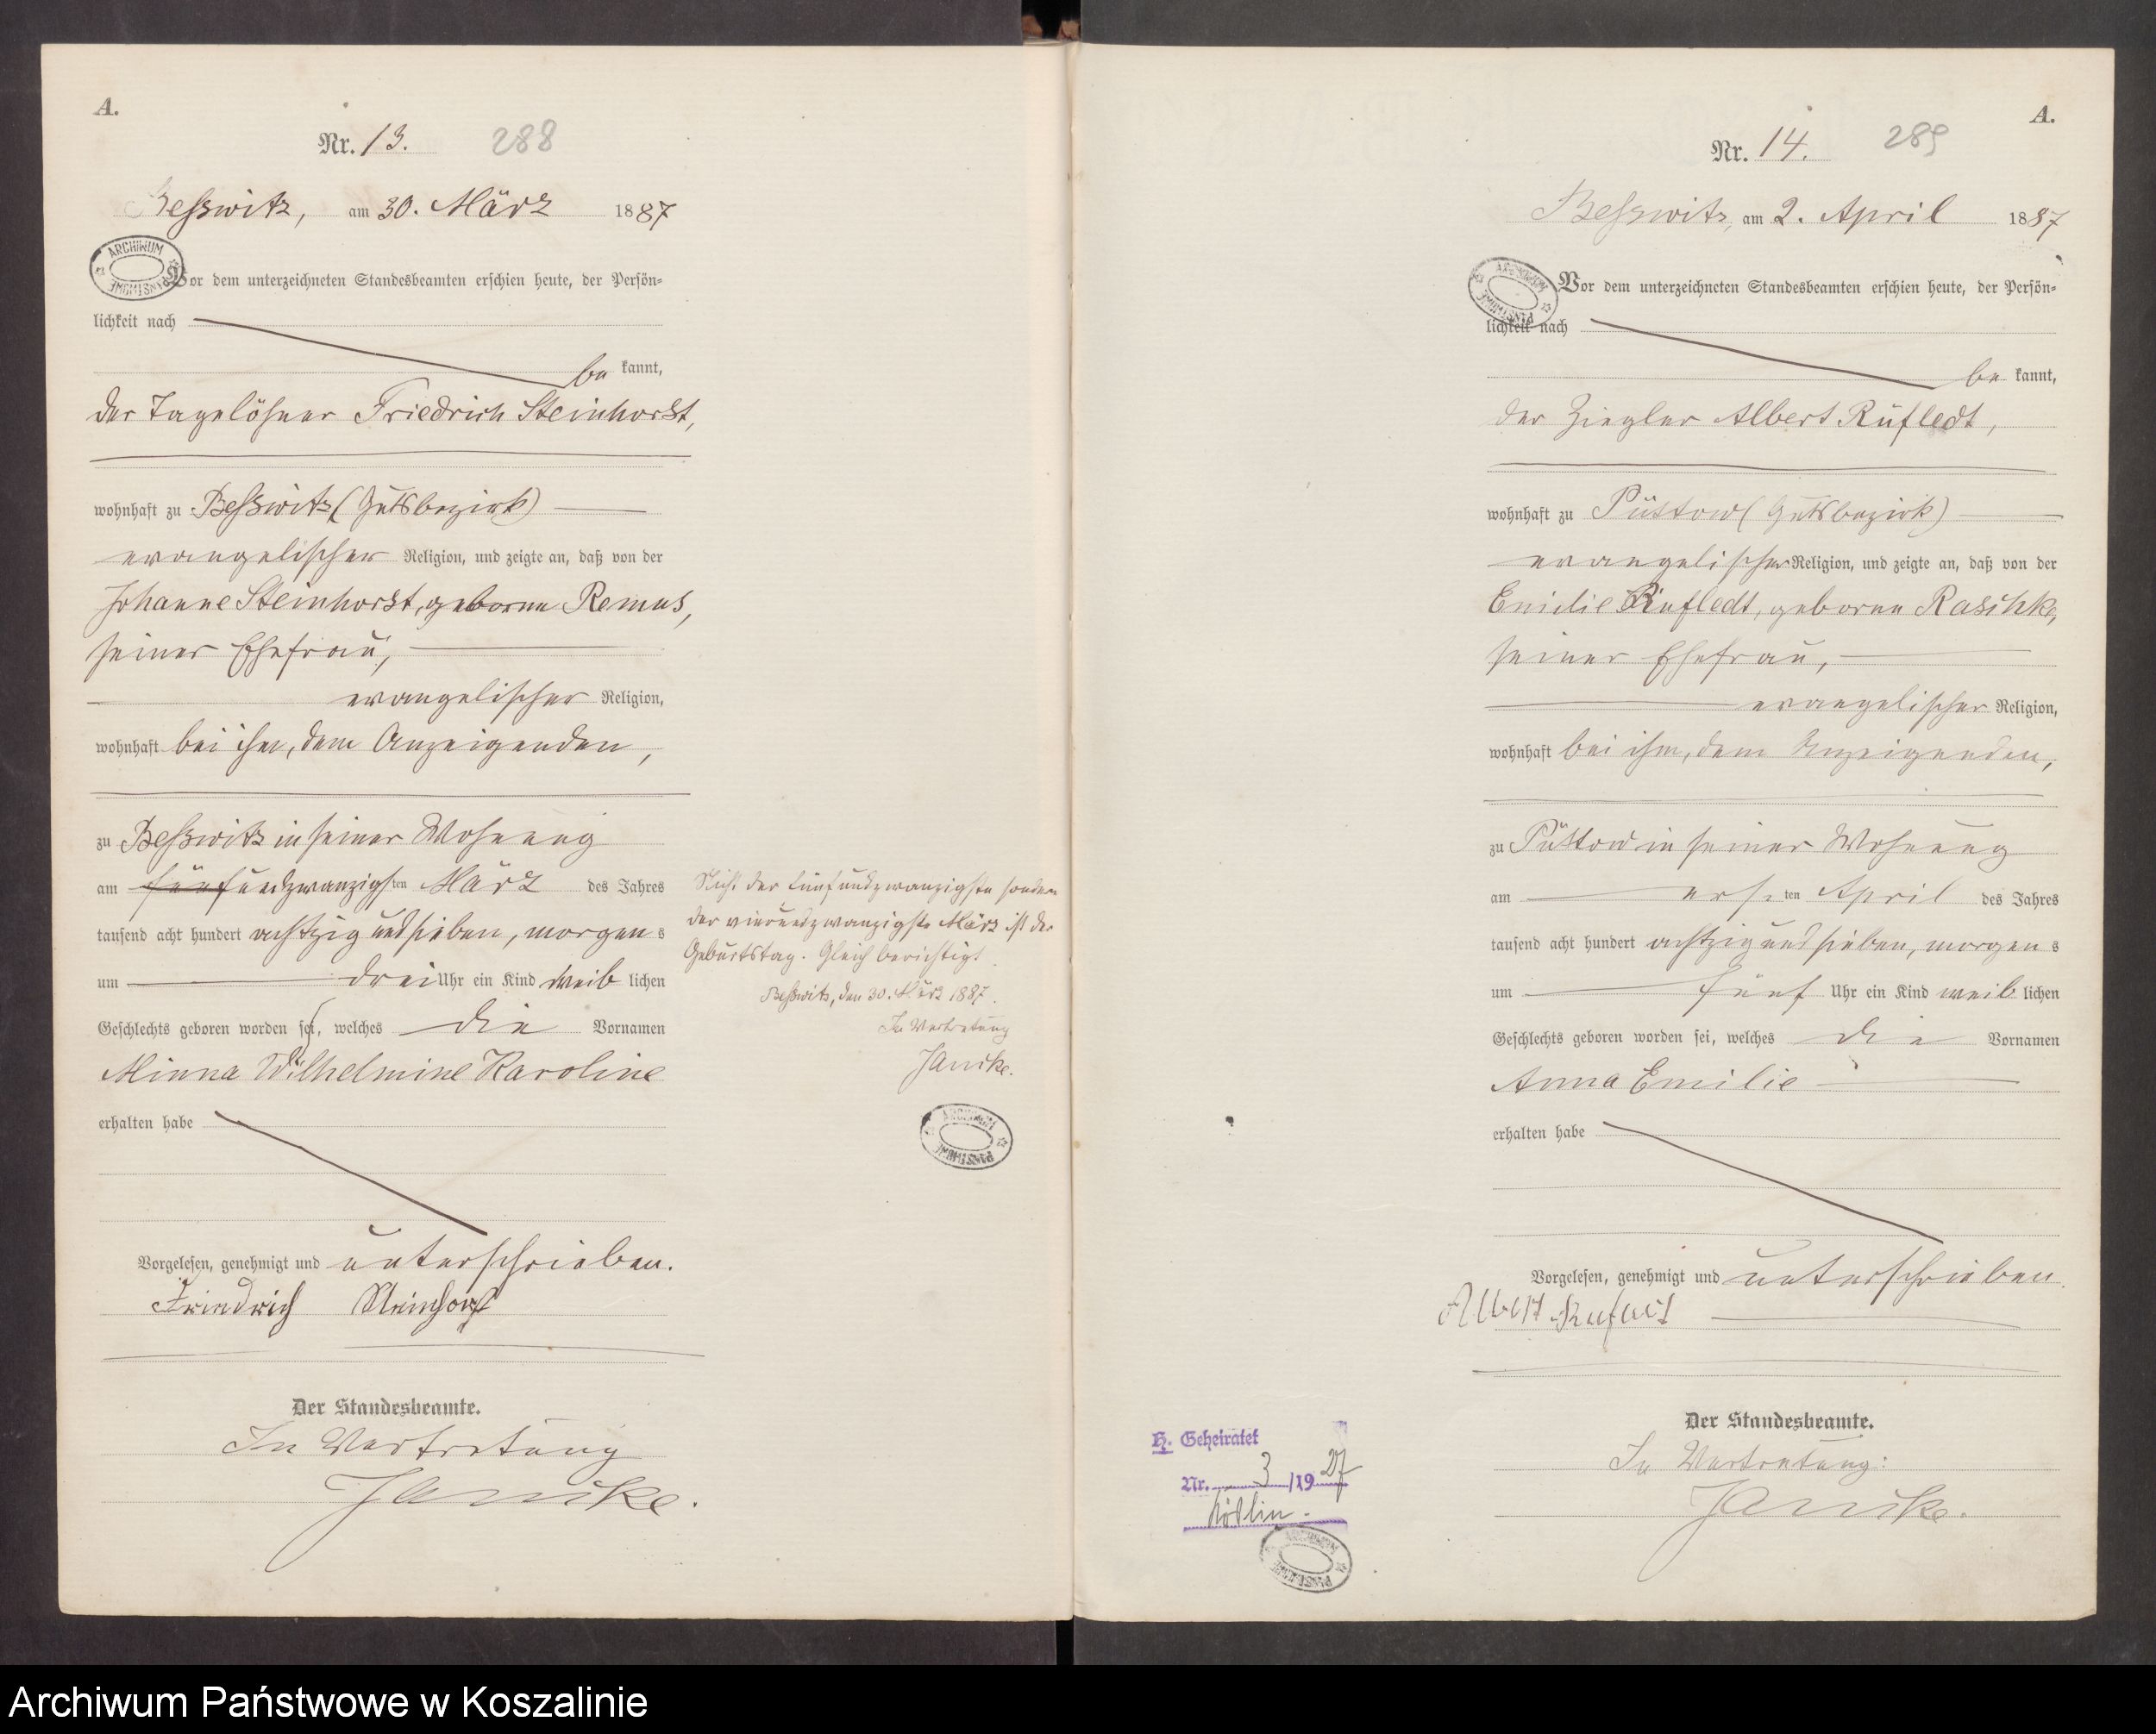 A.
Nr. 13. 288
Besswitz, am 30. März 1887
ARCHIWUM PAŃSTWOWE
Vor dem unterzeichneten Standesbeamten erschien heute, der Persön-
lichkeit nach
be kannt,
der Tagelöhner Friedrich Steinhorst,
wohnhaft zu Besswitz (Gutsbezirk)
evangelischer Religion, und zeigte an, daß von der
Johanne Steinhorst, geborne Remus,
seiner Ehefrau,
evangelischer Religion,
wohnhaft bei ihm, dem Anzeigenden,
zu Besswitz in seiner Wohnung
am fünfundzwanzigsten März des Jahres
tausend acht hundert achtzig und sieben, morgens
um drei Uhr ein Kind weiblichen
Geschlechts geboren worden sei, welches die Vornamen
Minna Wilhelmine Karoline
erhalten habe
Vorgelesen, genehmigt und unterschrieben.
Friedrich Steinhorst
Der Standesbeamte.
In Vertretung
Janike.
Nicht der fünfundzwanzigste sondern
der vierundzwanzigste März ist der
Geburtstag. Gleich berichtigt
Besswitz, den 30. März 1887.
In Vertretung
Janike.
ARCHIWUM PAŃSTWOWE
A.
Nr. 14. 289
Besswitz, am 2. April 1887
ARCHIWUM PAŃSTWOWE
Vor dem unterzeichneten Standesbeamten erschien heute, der Persön-
lichkeit nach
be kannt,
der Ziegler Albert Rufledt,
wohnhaft zu Püstow (Gutsbezirk)
evangelischer Religion, und zeigte an, daß von der
Emilie Rufledt, geborne Raschke,
seiner Ehefrau,
evangelischer Religion,
wohnhaft bei ihm, dem Anzeigenden,
zu Püstow in seiner Wohnung
am ersten April des Jahres
tausend acht hundert achtzig und sieben, morgens
um fünf Uhr ein Kind weiblichen
Geschlechts geboren worden sei, welches die Vornamen
Anna Emilie
erhalten habe
Vorgelesen, genehmigt und unterschrieben.
Albert
Der Standesbeamte.
In Vertretung:
Janike.
H. Geheiratet
Nr. 3 /1927
ARCHIWUM PAŃSTWOWE
Archiwum Państwowe w Koszalinie